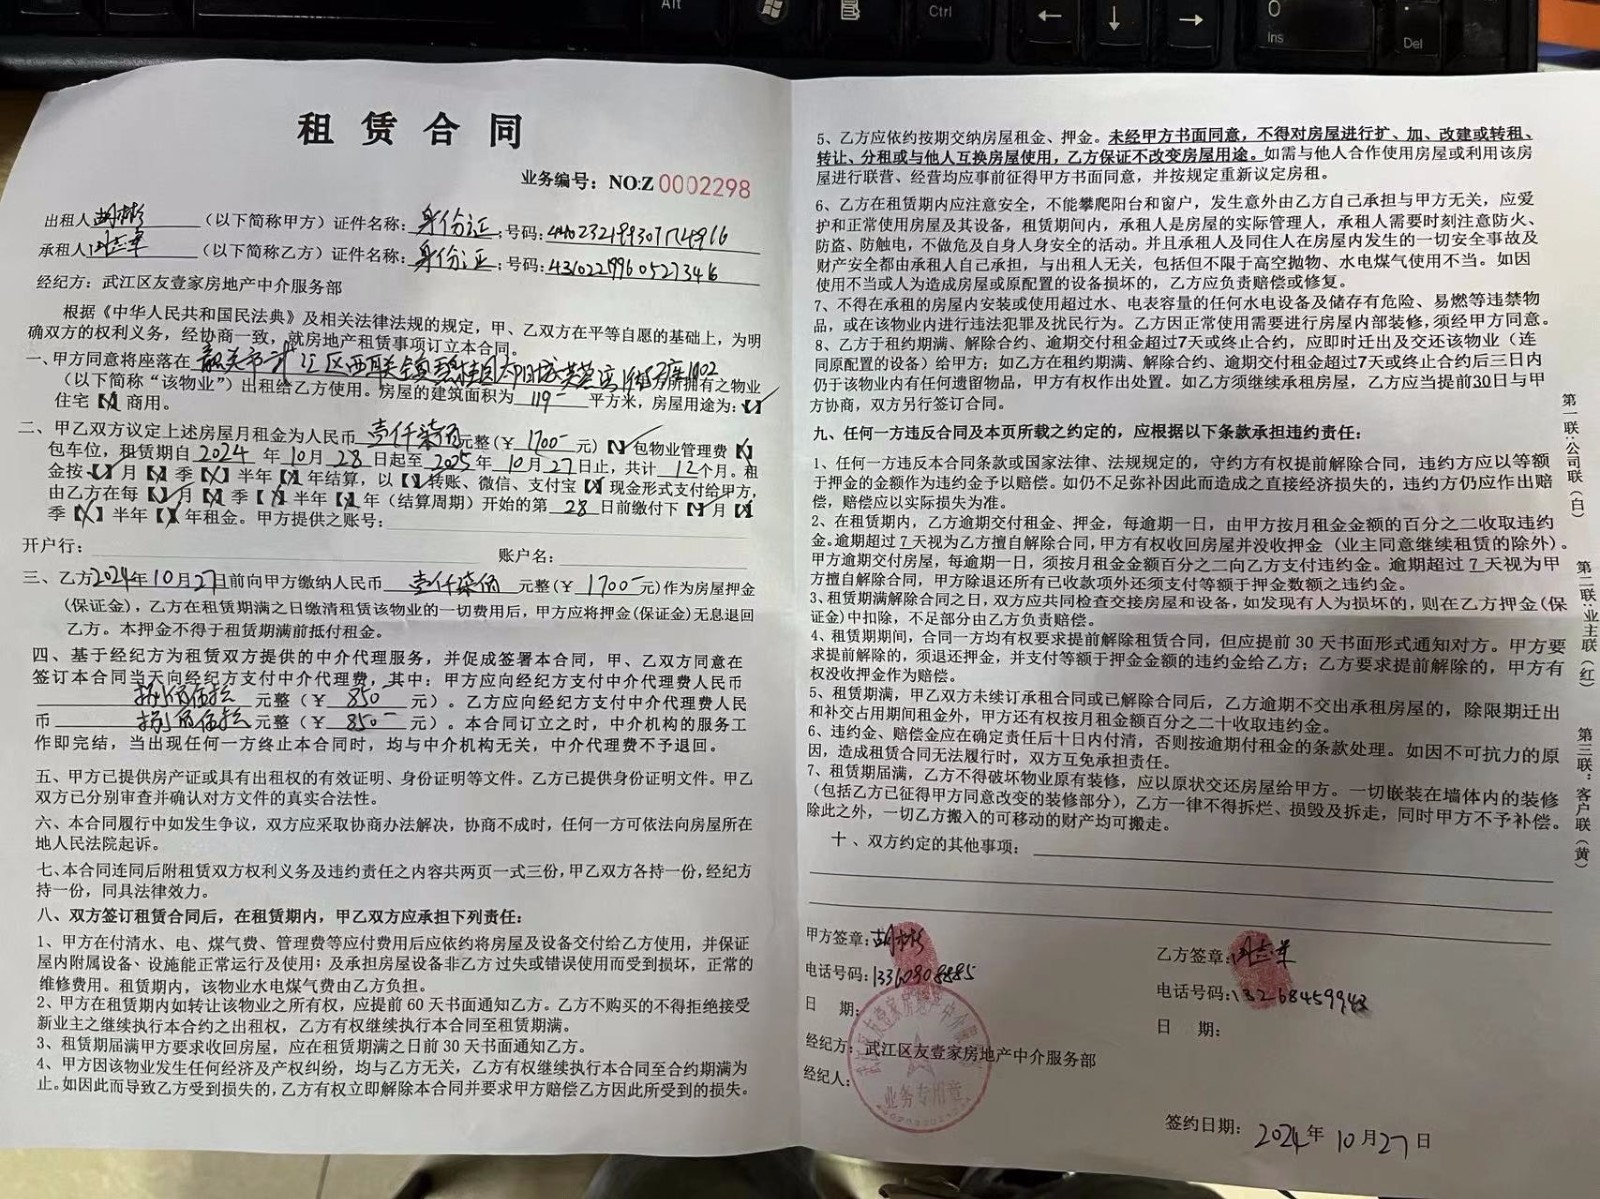 Alt
Ctrl
←
↓
→
0
Ins
.
Del
租赁合同
业务编号：NO:Z 0002298
出租人 胡彬彬 （以下简称甲方）证件名称：身份证；号码：
承租人 （以下简称乙方）证件名称：身份证；号码：
经纪方：武江区友壹家房地产中介服务部
根据《中华人民共和国民法典》及相关法律法规的规定，甲、乙双方在平等自愿的基础上，为明
确双方的权利义务，经协商一致，就房地产租赁事项订立本合同。
一、甲方同意将座落在 韶关市武江区西联镇碧桂园
（以下简称“该物业”）出租给乙方使用。房屋的建筑面积为 119 平方米，房屋用途为：【✓】
住宅【X】商用。
二、甲乙双方议定上述房屋月租金为人民币 壹仟柒佰 元整（￥ 1700- 元）【X】包物业管理费【X】
包车位，租赁期自 2024 年 10 月 28 日起至 2025 年 10 月 27 日止，共计 12 个月。租
金按【✓】月【X】季【X】半年【X】年结算，以【✓】转账、微信、支付宝【X】现金形式支付给甲方，
由乙方在每【✓】月【X】季【X】半年【X】年（结算周期）开始的第 28 日前缴付下【✓】月【X】
季【X】半年【X】年租金。甲方提供之账号：
开户行： 账户名：
三、乙方 2024年10月27日 前向甲方缴纳人民币 壹仟柒佰 元整（￥ 1700- 元）作为房屋押金
（保证金），乙方在租赁期满之日缴清租赁该物业的一切费用后，甲方应将押金（保证金）无息退回
乙方。本押金不得于租赁期满前抵付租金。
四、基于经纪方为租赁双方提供的中介代理服务，并促成签署本合同，甲、乙双方同意在
签订本合同当天向经纪方支付中介代理费，其中：甲方应向经纪方支付中介代理费人民币
捌佰伍拾 元整（￥ 850- 元）。乙方应向经纪方支付中介代理费人民
币 捌佰伍拾 元整（￥ 850- 元）。本合同订立之时，中介机构的服务工
作即完结，当出现任何一方终止本合同时，均与中介机构无关，中介代理费不予退回。
五、甲方已提供房产证或具有出租权的有效证明、身份证明等文件。乙方已提供身份证明文件。甲乙
双方已分别审查并确认对方文件的真实合法性。
六、本合同履行中如发生争议，双方应采取协商办法解决，协商不成时，任何一方可依法向房屋所在
地人民法院起诉。
七、本合同连同后附租赁双方权利义务及违约责任之内容共两页一式三份，甲乙双方各持一份，经纪方
持一份，同具法律效力。
八、双方签订租赁合同后，在租赁期内，甲乙双方应承担下列责任：
1、甲方在付清水、电、煤气费、管理费等应付费用后应依约将房屋及设备交付给乙方使用，并保证
屋内附属设备、设施能正常运行及使用；及承担房屋设备非乙方过失或错误使用而受到损坏，正常的
维修费用。租赁期内，该物业水电煤气费由乙方负担。
2、甲方在租赁期内如转让该物业之所有权，应提前 60 天书面通知乙方。乙方不购买的不得拒绝接受
新业主之继续执行本合约之出租权，乙方有权继续执行本合同至租赁期满。
3、租赁期届满甲方要求收回房屋，应在租赁期满之日前 30 天书面通知乙方。
4、甲方因该物业发生任何经济及产权纠纷，均与乙方无关，乙方有权继续执行本合同至合约期满为
止。如因此而导致乙方受到损失的，乙方有权立即解除本合同并要求甲方赔偿乙方因此所受到的损失。
5、乙方应依约按期交纳房屋租金、押金。未经甲方书面同意，不得对房屋进行扩、加、改建或转租、
转让、分租或与他人互换房屋使用，乙方保证不改变房屋用途。如需与他人合作使用房屋或利用该房
屋进行联营、经营均应事前征得甲方书面同意，并按规定重新议定房租。
6、乙方在租赁期内应注意安全，不能攀爬阳台和窗户，发生意外由乙方自己承担与甲方无关，应爱
护和正常使用房屋及其设备，租赁期间内，承租人是房屋的实际管理人，承租人需要时刻注意防火、
防盗、防触电，不做危及自身人身安全的活动。并且承租人及同住人在房屋内发生的一切安全事故及
财产安全都由承租人自己承担，与出租人无关，包括但不限于高空抛物、水电煤气使用不当。如因
使用不当或人为造成房屋或原配置的设备损坏的，乙方应负责赔偿或修复。
7、不得在承租的房屋内安装或使用超过水、电表容量的任何水电设备及储存有危险、易燃等违禁物
品，或在该物业内进行违法犯罪及扰民行为。乙方因正常使用需要进行房屋内部装修，须经甲方同意。
8、乙方于租约期满、解除合约、逾期交付租金超过7天或终止合约，应即时迁出及交还该物业（连
同原配置的设备）给甲方；如乙方在租约期满、解除合约、逾期交付租金超过7天或终止合约后三日内
仍于该物业内有任何遗留物品，甲方有权作出处置。如乙方须继续承租房屋，乙方应当提前30日与甲
方协商，双方另行签订合同。
九、任何一方违反合同及本页所载之约定的，应根据以下条款承担违约责任：
1、任何一方违反本合同条款或国家法律、法规规定的，守约方有权提前解除合同，违约方应以等额
于押金的金额作为违约金予以赔偿。如仍不足弥补因此而造成之直接经济损失的，违约方仍应作出赔
偿，赔偿应以实际损失为准。
2、在租赁期内，乙方逾期交付租金、押金，每逾期一日，由甲方按月租金金额的百分之二收取违约
金。逾期超过 7 天视为乙方擅自解除合同，甲方有权收回房屋并没收押金（业主同意继续租赁的除外）。
甲方逾期交付房屋，每逾期一日，须按月租金金额百分之二向乙方支付违约金。逾期超过 7 天视为甲
方擅自解除合同，甲方除退还所有已收款项外还须支付等额于押金数额之违约金。
3、租赁期满解除合同之日，双方应共同检查交接房屋和设备，如发现有人为损坏的，则在乙方押金（保
证金）中扣除，不足部分由乙方负责赔偿。
4、租赁期期间，合同一方均有权要求提前解除租赁合同，但应提前 30 天书面形式通知对方。甲方要
求提前解除的，须退还押金，并支付等额于押金金额的违约金给乙方；乙方要求提前解除的，甲方有
权没收押金作为赔偿。
5、租赁期满，甲乙双方未续订承租合同或已解除合同后，乙方逾期不交出承租房屋的，除限期迁出
和补交占用期间租金外，甲方还有权按月租金额百分之二十收取违约金。
6、违约金、赔偿金应在确定责任后十日内付清，否则按逾期付租金的条款处理。如因不可抗力的原
因，造成租赁合同无法履行时，双方互免承担责任。
7、租赁期届满，乙方不得破坏物业原有装修，应以原状交还房屋给甲方。一切嵌装在墙体内的装修
（包括乙方已征得甲方同意改变的装修部分），乙方一律不得拆烂、损毁及拆走，同时甲方不予补偿。
除此之外，一切乙方搬入的可移动的财产均可搬走。
十、双方约定的其他事项：
甲方签章：胡彬彬
乙方签章：
电话号码：13360808885
电话号码：
日 期：
日 期：
经纪方：武江区友壹家房地产中介服务部
经纪人：
业务专用章
签约日期：2024年10月27日
第一联：公司联（白）
第二联：业主联（红）
第三联：客户联（黄）